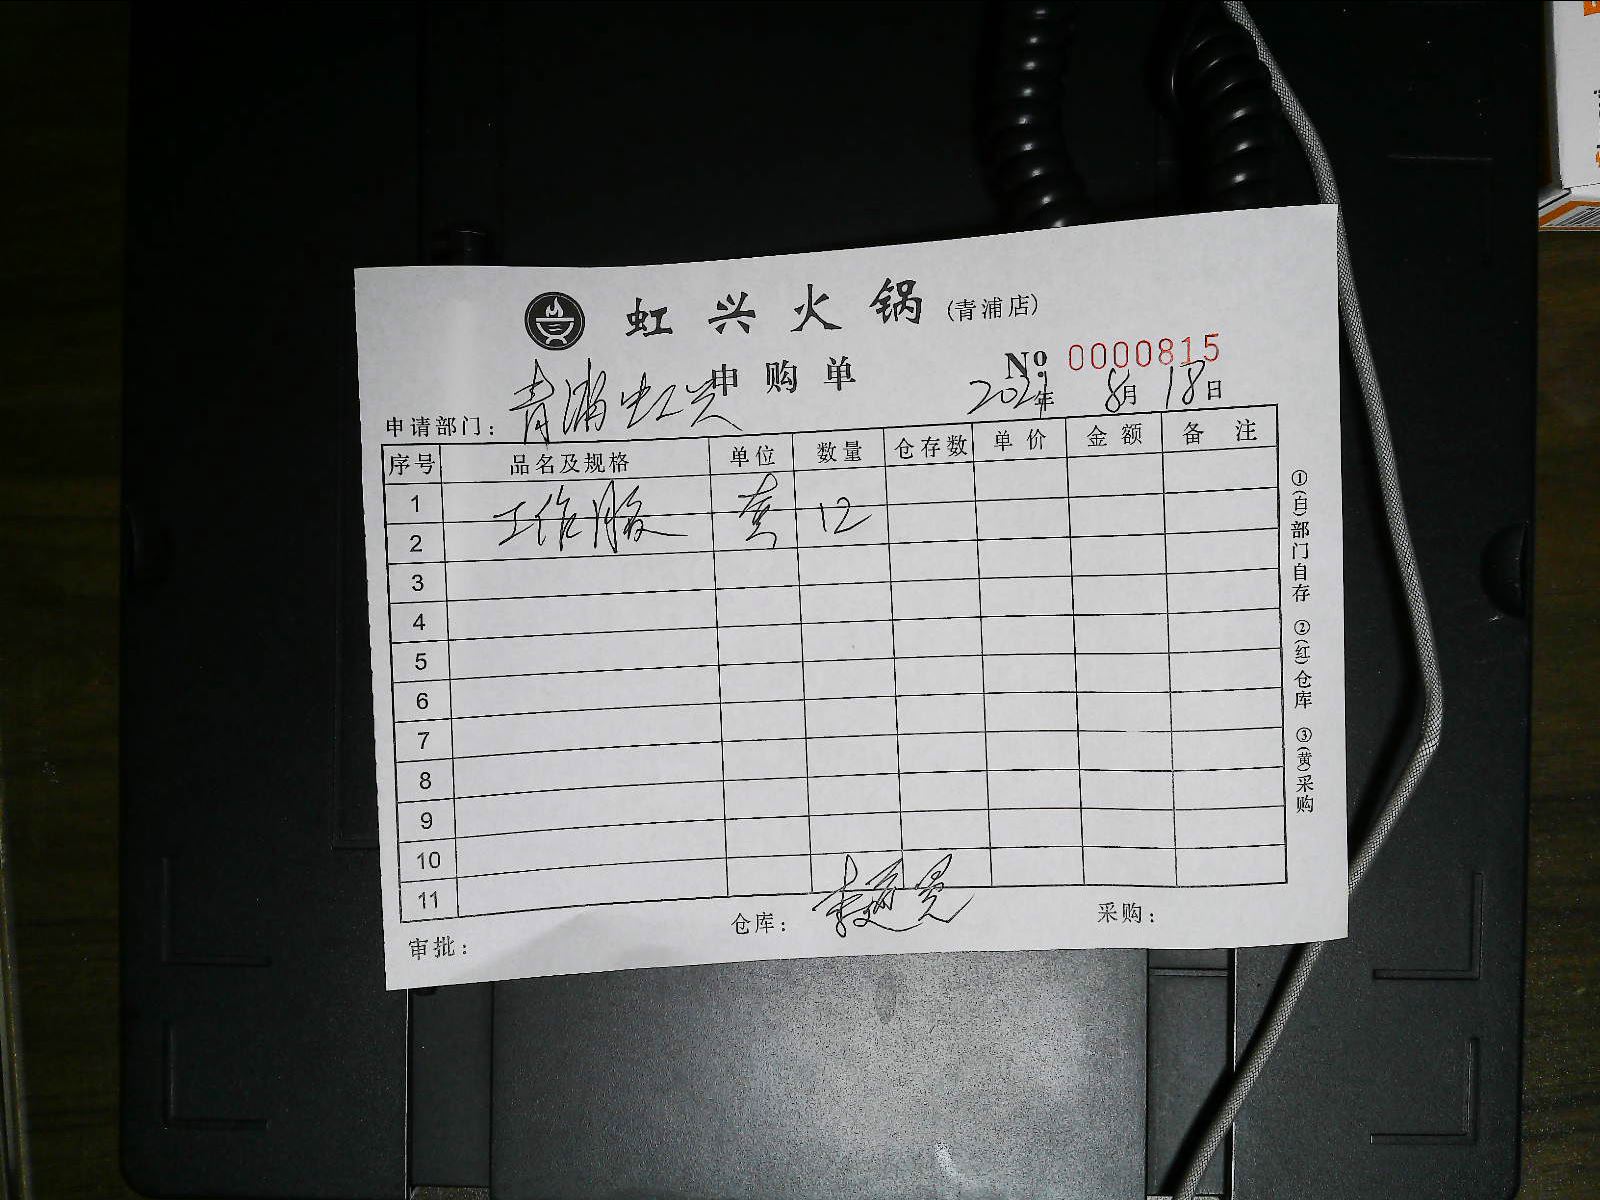 虹兴火锅(青浦店)
申购单 № 0000815
申请部门: 青浦虹兴 2021年 8月 18日
序号 品名及规格 单位 数量 仓存数 单价 金额 备注
1
工作服 套 12
2
3
4
5
6
7
8
9
10
11
审批: 仓库: 采购:
①(白)部门自存 ②(红)仓库 ③(黄)采购